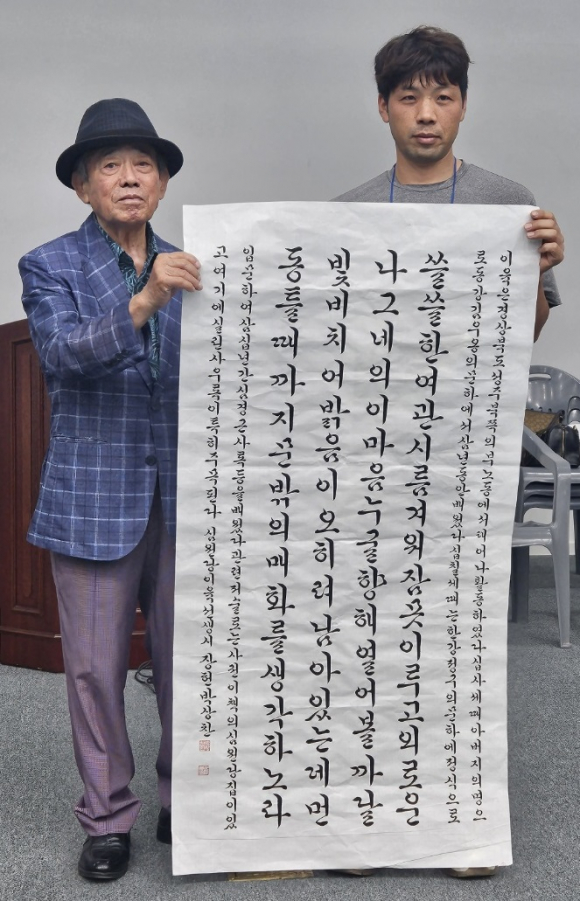 이육은경상북도성주 에서태어나활동하였다십사세때아버지의명으
로동강김우옹의문하에서삼년동안배웠다십칠세때는한강정구의문하에정식으로
쓸쓸한여관시름겨워잠못이루고외로운
나그네의이마음누굴향해열어볼까달
빛비치어밝음이오히려남아있는데먼
동틀때까지문밖의매화를생각하노라
입문하여삼십년간심경근사록등을배웠다관련자료로는 심원당집이있
고여기에실린사우록이특히주목된다 심원당이육선생시 박상찬